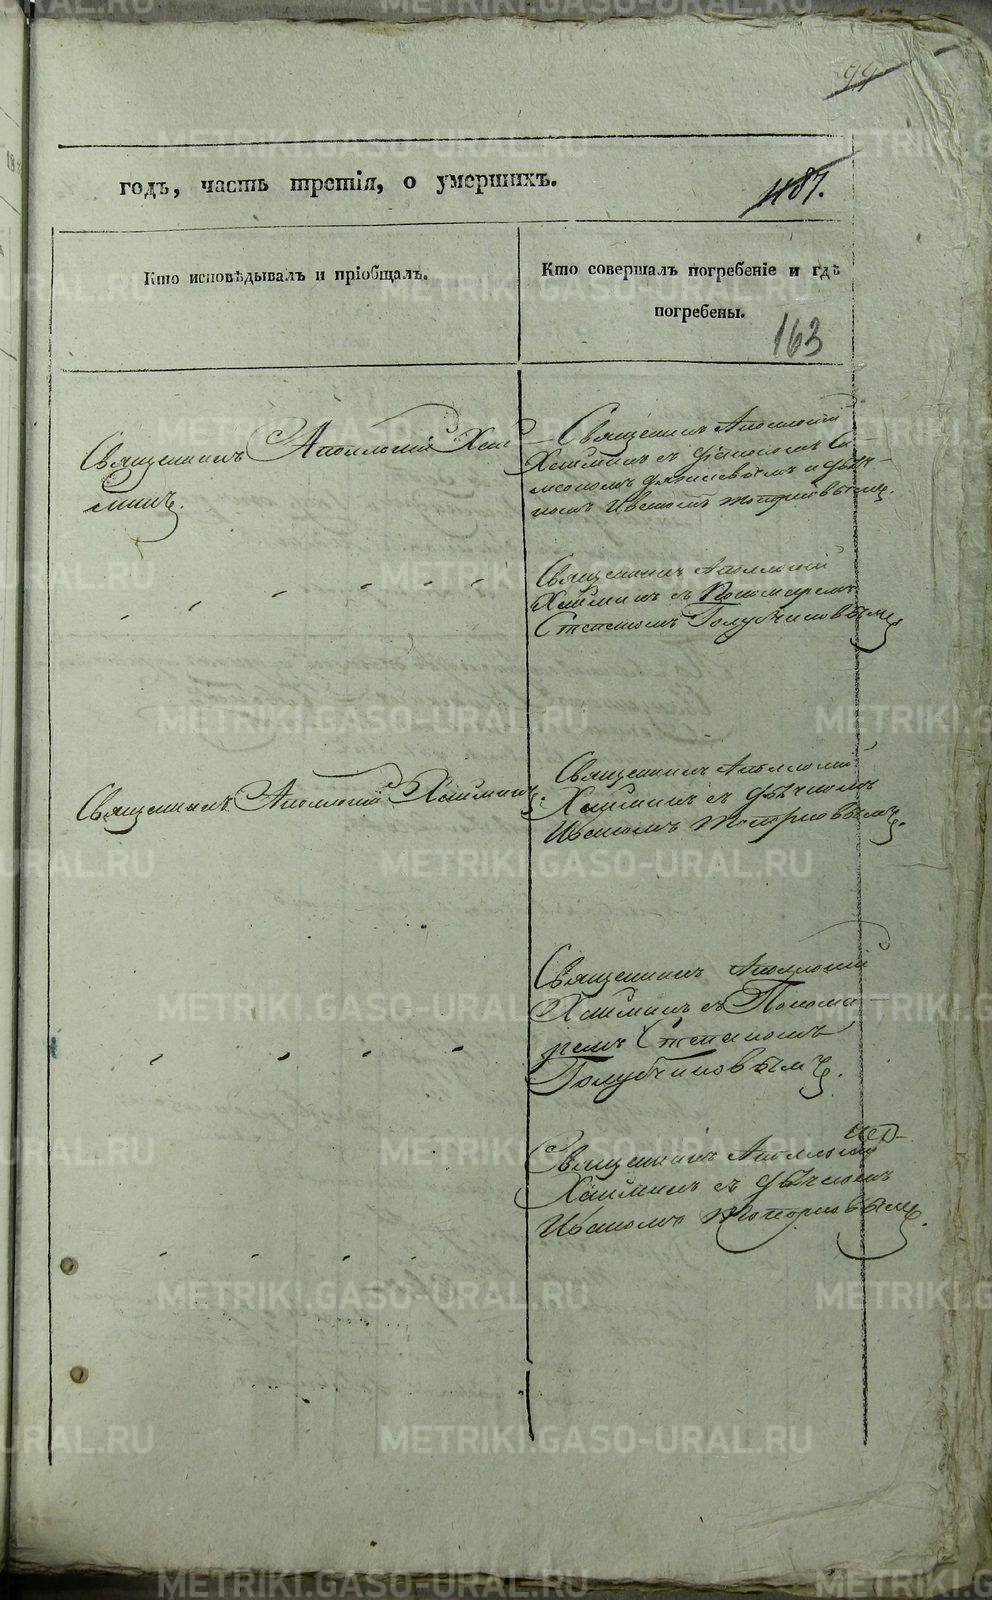 99
годъ, часть третія, о умершихъ.
1187.
Кто исповѣдывалъ и пріобщалъ.
Кто совершалъ погребеніе и гдѣ
погребены.
163
Священникъ Аполлоній Хай-
минъ.
Священникъ Аполлоній
Хайминъ съ діакономъ
и дьяч-
комъ Иваномъ Топорковымъ.
Священникъ Аполлоній
Хайминъ съ Пономаремъ
Степаномъ Голубчиковымъ.
Священникъ Аполлоній Хайминъ.
Священникъ Аполлоній
Хайминъ съ дьячкомъ
Иваномъ Топорковымъ.
Священникъ Аполлоній
Хайминъ съ Понома-
ремъ Степаномъ
Голубчиковымъ.
Священникъ Аполлоній
Хайминъ съ дьячкомъ
Иваномъ Топорковымъ.
METRIKI.GASO-URAL.RU